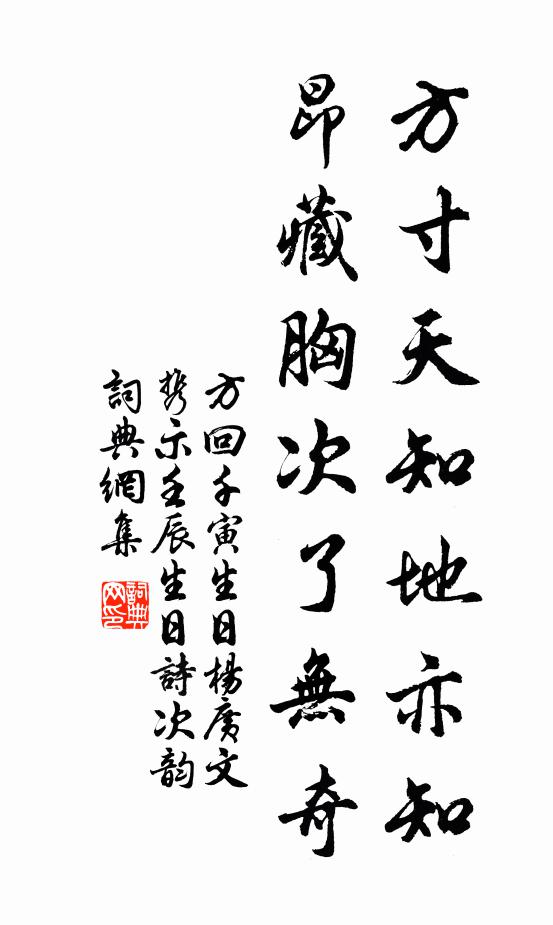 方寸天知地亦知
昂藏胸次了無奇
方回壬寅生日楊廣文
携示壬辰生日詩次韵
詞典網集
詞典
网印